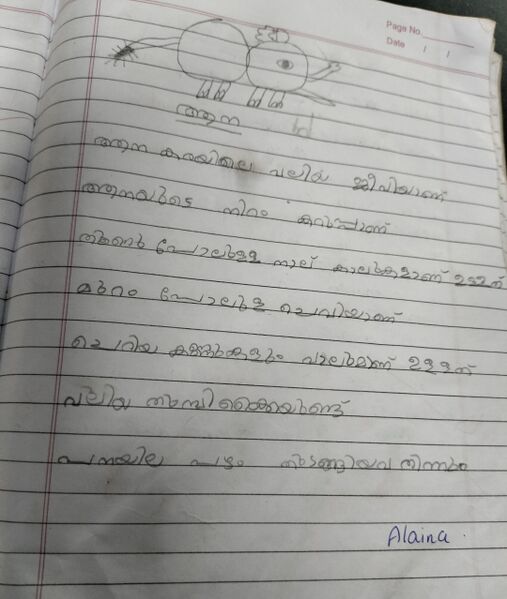 Page No.
Date / /
ആന
ആന കരയിലെ വലിയ ജീവിയാണ്
ആനയുടെ നിറം കറുപ്പാണ്
തൂണ് പോലുള്ള നാല് കാലുകളാണ് ഉള്ളത്
മുറം പോലുള്ള ചെവിയാണ്
ചെറിയ കണ്ണുകളും വാലുമാണ് ഉള്ളത്
വലിയ തുമ്പികൈയുണ്ട്
പനയില പഴം തുടങ്ങിയവ തിന്നും
Alaina.